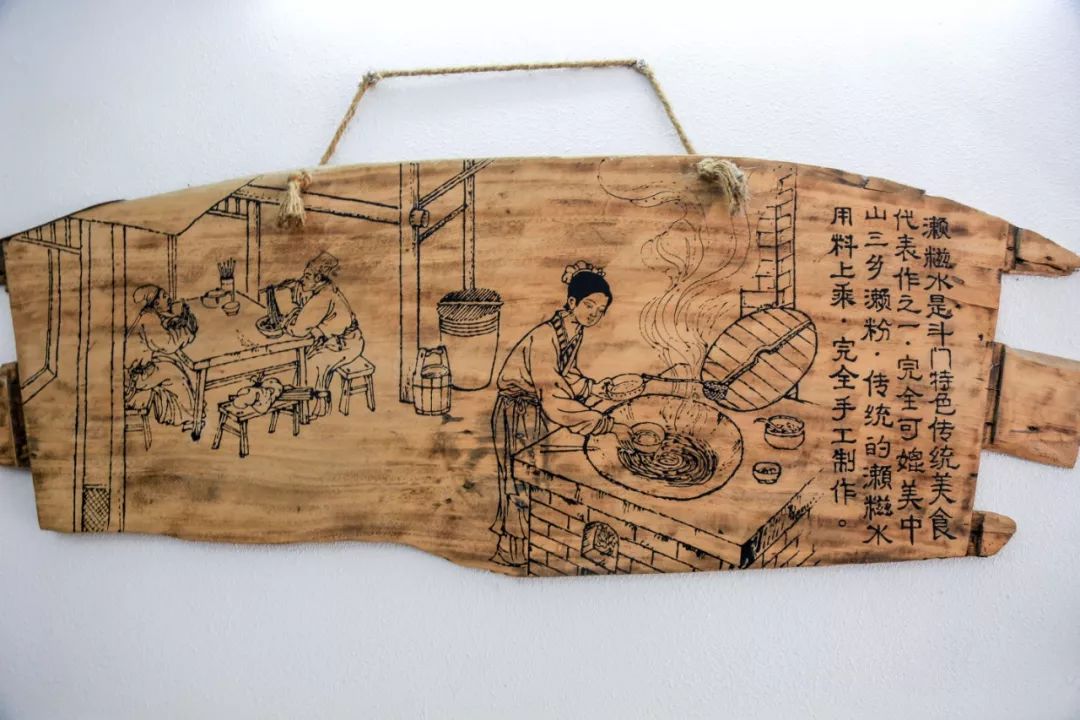 濑糍水是斗门特色传统美食
代表作之一．完全可媲美中
山三乡濑粉．传统的瀨糍水
用料上乘．完全手工制作。